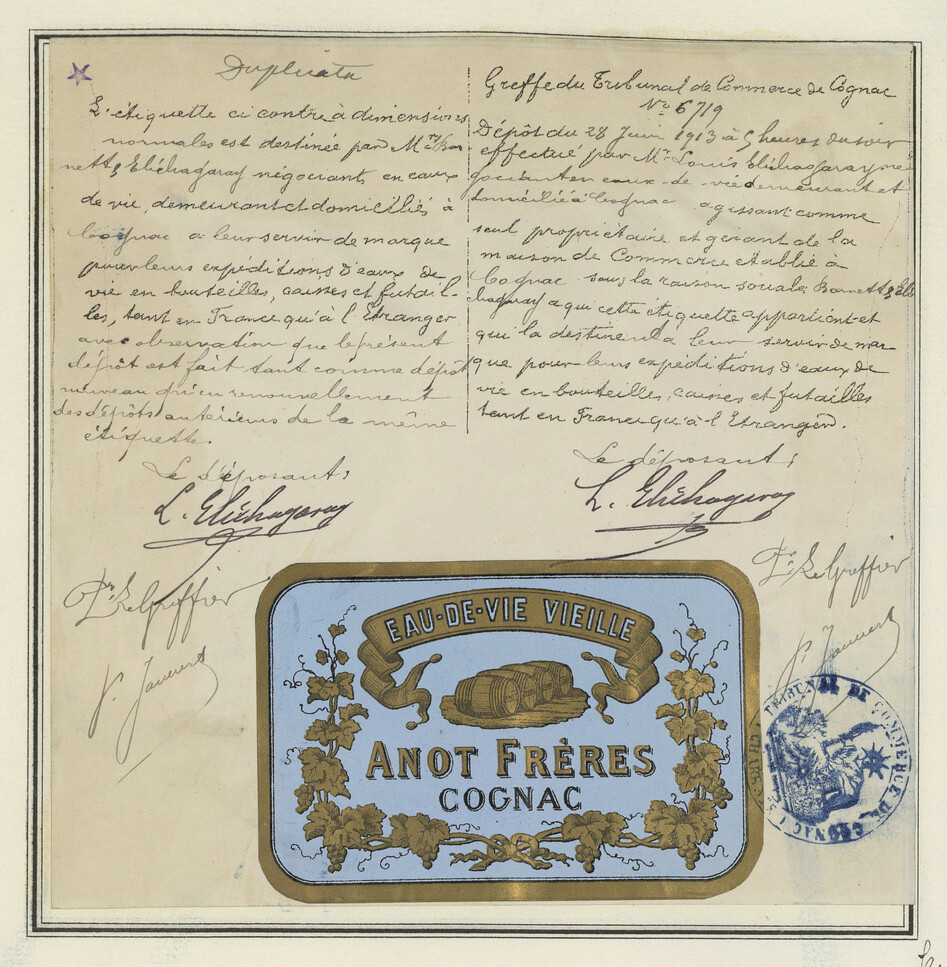 Duplicata
L'étiquette ci contre à dimensions
normales est destinée par Mrs Bar-
nett & Elichagaray négociants en eaux
de vie, demeurant et domiciliés à
Cognac a leur servir de marque
pour leurs expéditions d'eaux de
vie en bouteilles, caisses et futail-
les, tant en France qu'à l'Etranger
avec observation que le présent
dépôt est fait tant comme dépôt
nouveau qu'en renouvellement
des dépôts antérieurs de la même
étiquette.
Le déposant:
L. Elichagaray
Pr Le Greffier
Greffe du Tribunal de Commerce de Cognac
No 6719
Dépôt du 28 Juin 1913 à 5 heures du soir
effectué par Mr Louis Elichagaray né
gociant en eaux-de-vie demeurant et
domicilié à Cognac agissant comme
seul propriétaire et gérant de la
maison de Commerce établie à
Cognac sous la raison sociale Barnett & Eli
chagaray a qui cette étiquette appartient et
qui la destine a leur servir de mar
que pour leurs expéditions d'eaux de
vie en bouteilles, caisses et futailles
tant en France qu'à l'Etranger.
Le déposant:
L. Elichagaray
Pr Le Greffier
EAU-DE-VIE VIEILLE
ANOT FRÈRES
COGNAC
TRIBUNAL DE COMMERCE DE COGNAC